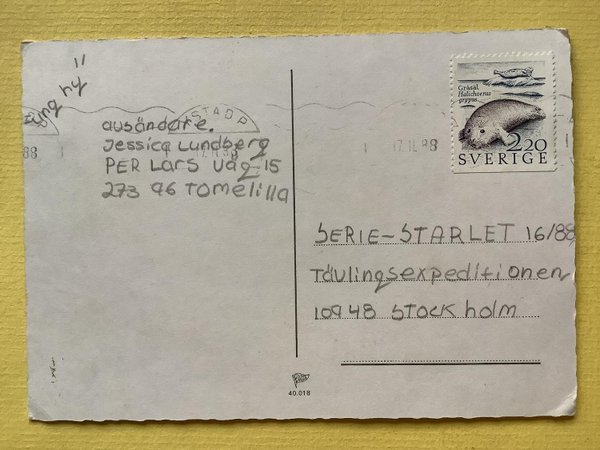 ung ny"
STADP
88
17.11.88
ausändare.
Jessica Lundberg
PER Lars väg-15
273 96 Tomelilla
Gråsäl
Halichoerus
grypus
2.20
SVERIGE
17.11.88
SERIE-STARLET 16/88
Tävlingsexpeditionen
10948 STOCKholm
40.018